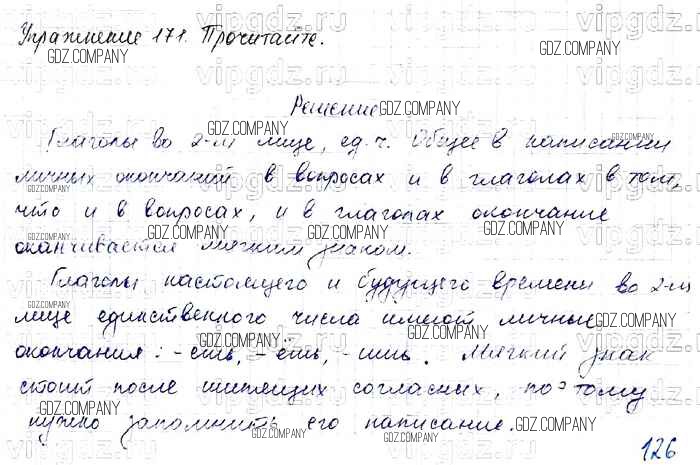 Упражнение 171. Прочитайте.
Решение
Глаголы во 2-м лице, ед. ч. Общее в написании
личных окончаний в вопросах и в глаголах в том,
что и в вопросах, и в глаголах окончание
оканчивается мягким знаком.
Глаголы настоящего и будущего времени во 2-м
лице единственного числа имеют личные
окончания: -ешь, -ёшь, -ишь. Мягкий знак
стоит после шипящих согласных, поэтому
нужно запомнить его написание.
126